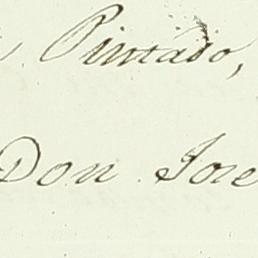 Pintado,
Don Jose